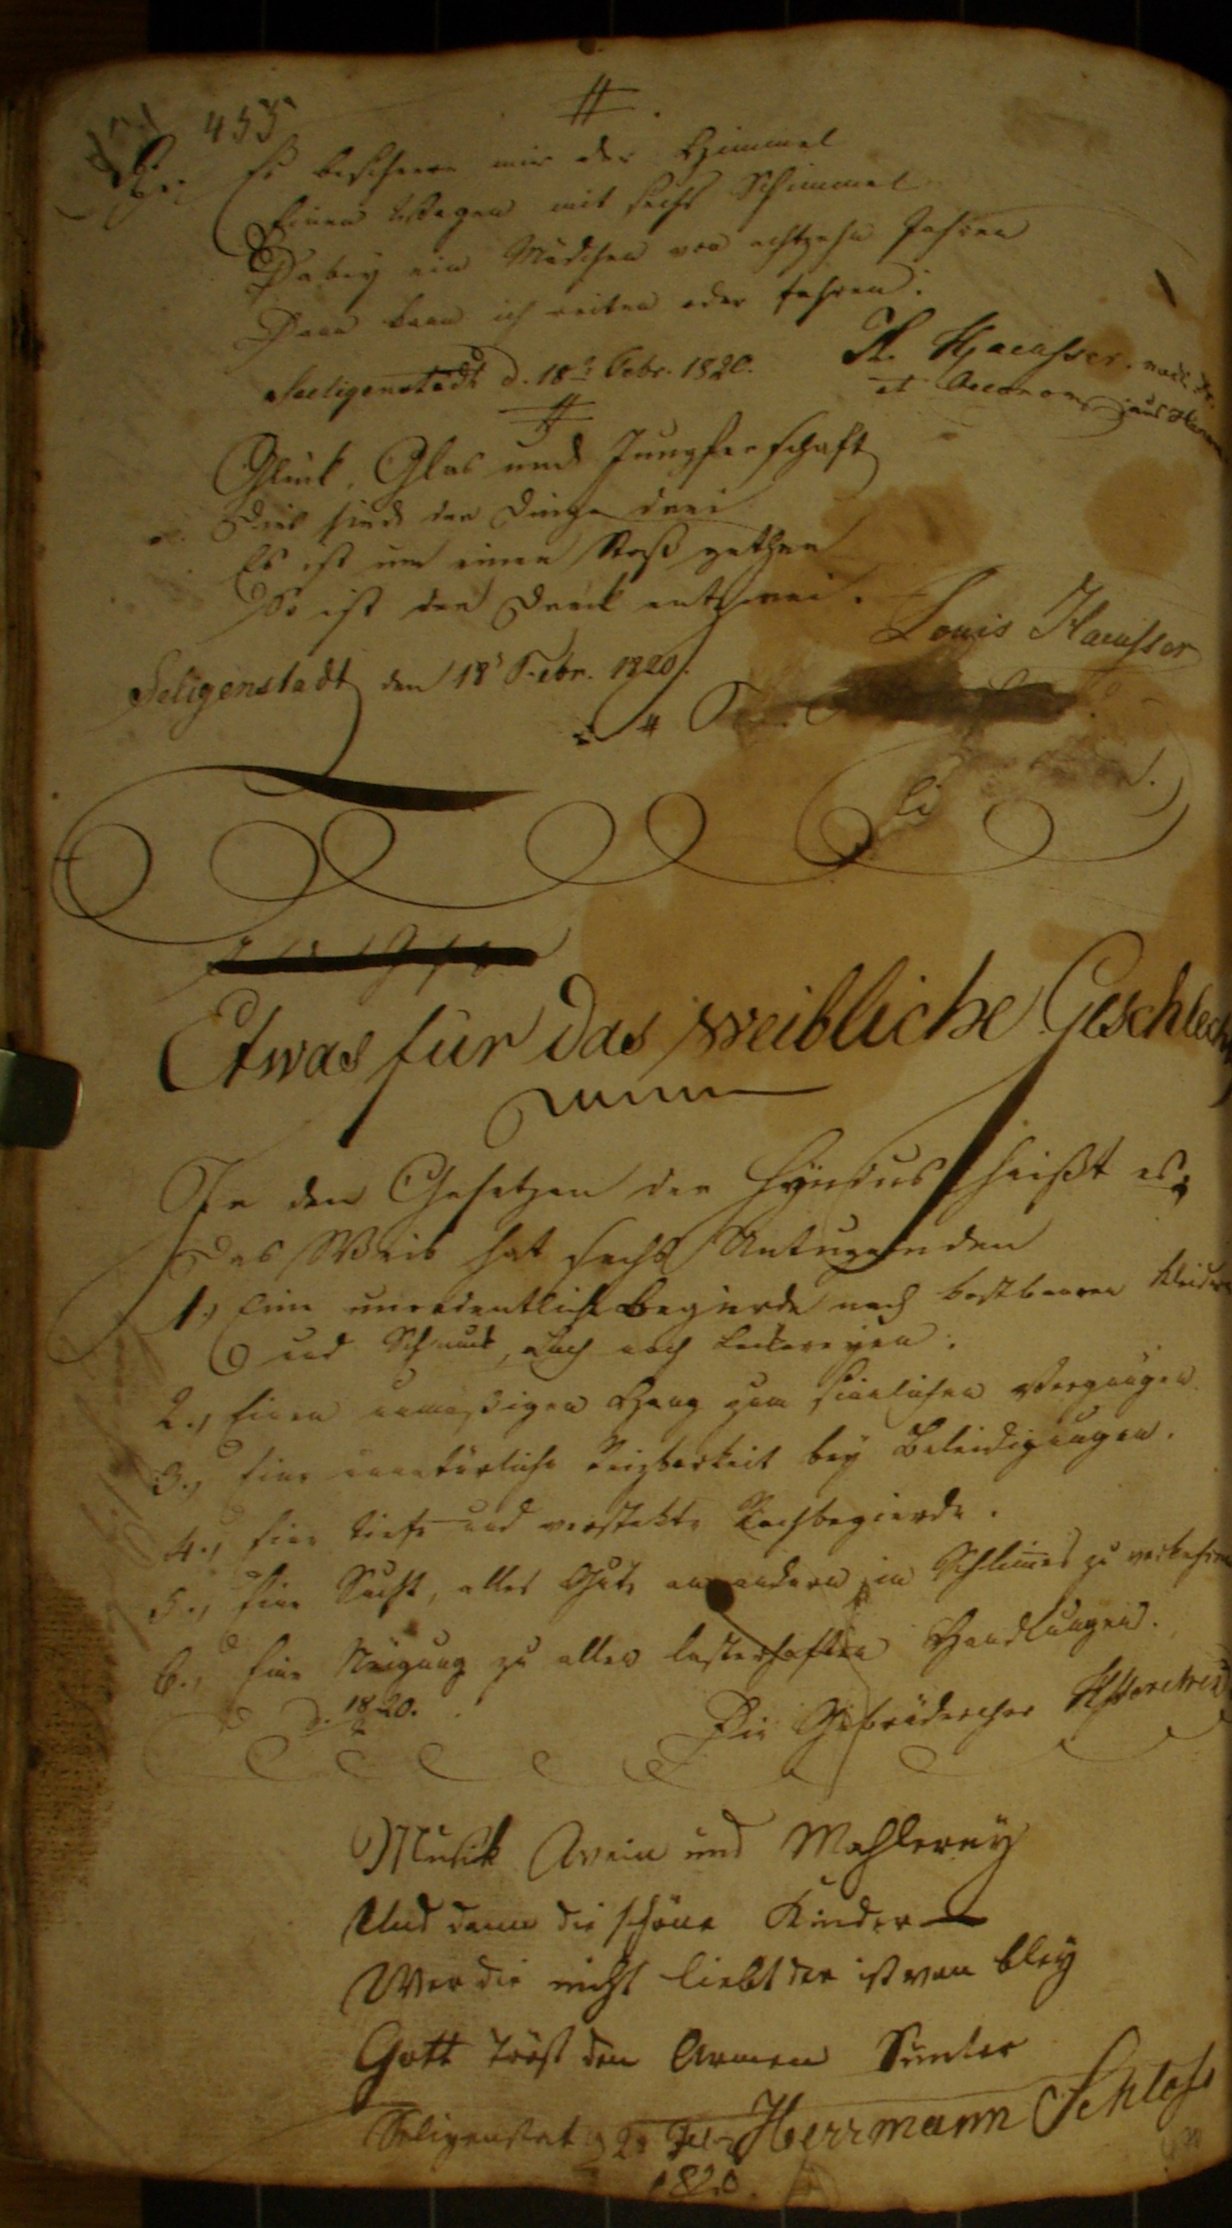 455
Es beschere mir der Himmel
Einen Wagen mit sechs Schimmel
Dabey ein Mädchen von achtzehn Jahren
Dann kann ich reiten oder fahren.
Seeligenstadt d. 18 Febr. 1820.
Haeusser
Glück, Glas und Jungferschaft
Dies sind der Dinge drei
Es ist um einen Stoß gethan
So ist der Dreck entzwei.
Louis Haeusser
Seligenstadt den 18 Febr. 1820.
Etwas für das weibliche Geschlech
In den Gesetzen der Hindus heißt es,
Das Weib hat sechs Untugenden
1., Eine unordentliche Begierde nach kostbaren Kleider
und Schmuck, auch nach Leckereyen.
2., Einen unmäßigen Hang zum sinnlichen Vergnügen
3., Eine unnatürliche Reizbarkeit bey Beleidigungen.
4., Eine tiefe und verstekte Rachbegierde.
5., Eine Sucht, alles Gute an andern in Schlim̄es zu verkehren
6., Eine Neigung zu allen lasterhaften Handlungen.
1820.
Die Gebrüder
Musik Wein und Mahlerey
Und dann die schöne Kinder
Wer die nicht liebt der ist von bley
Gott tröst den Armen Sünder
Seligenstat
Herrmann Schloss
1820.